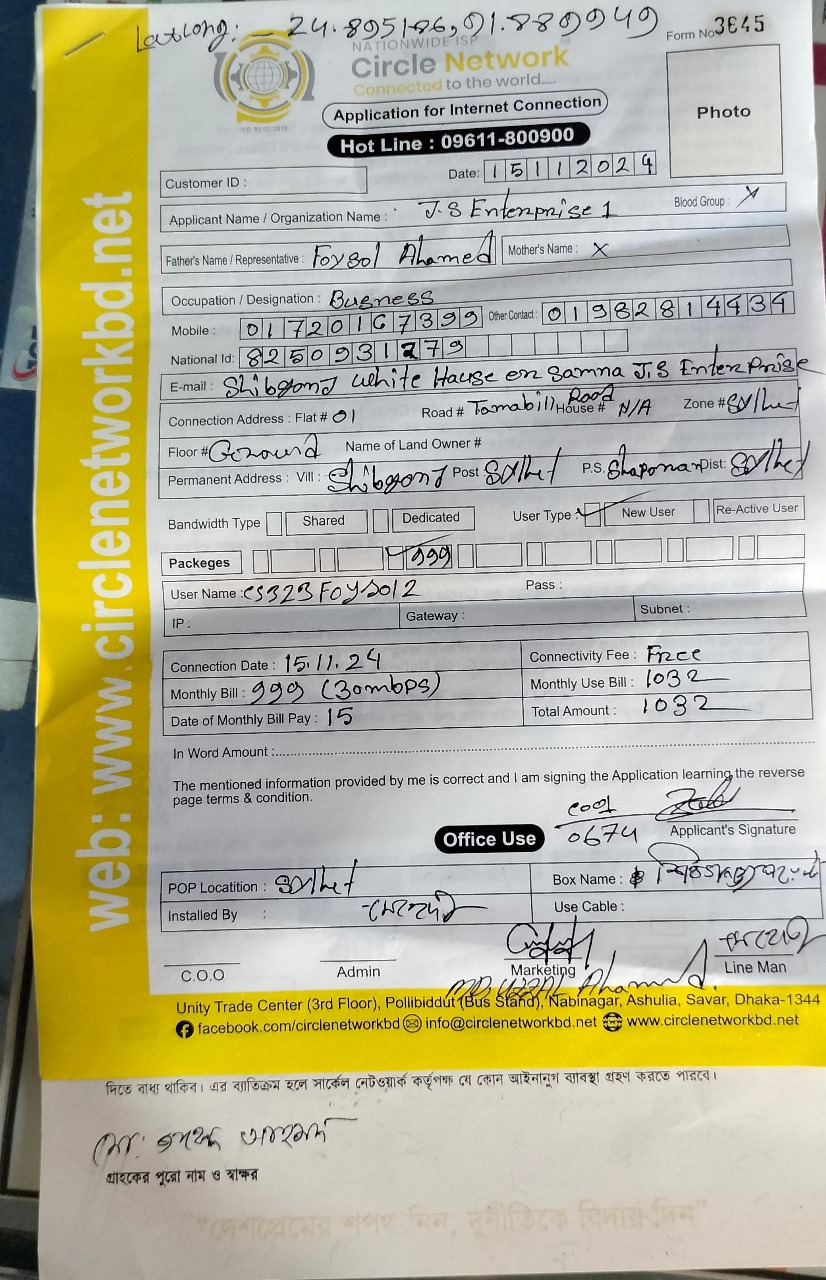 Latlong: - 24.895186, 91.889949
NATIONWIDE ISP
Circle Network
Connected to the world....
ISO 9001:2015
Form No 3645
Application for Internet Connection
Hot Line : 09611-800900
Photo
Customer ID :
Date: 15112024
Applicant Name / Organization Name : J.S Enterprise 1
Blood Group : X
Father's Name / Representative : Foysol Ahamed
Mother's Name : X
Occupation / Designation : Busness
Mobile : 01720167399 Other Contact : 01982814434
National Id: 8250931279
E-mail : Shibgonj white House en Samna J.S Enterprise
Connection Address : Flat # 01 Road # Tamabill Road House # N/A Zone # Sylhet
Floor # Ground Name of Land Owner #
Permanent Address : Vill : Shibgonj Post Sylhet P.S. Shaporan Dist: Sylhet
Bandwidth Type Shared Dedicated User Type : New User Re-Active User
Packeges 999
User Name : CS323Foysol2 Pass :
IP : Gateway : Subnet :
Connection Date : 15.11.24 Connectivity Fee : Free
Monthly Bill : 999 (30mbps) Monthly Use Bill : 1032
Date of Monthly Bill Pay : 15 Total Amount : 1032
In Word Amount :
The mentioned information provided by me is correct and I am signing the Application learning the reverse
page terms & condition.
0674
Office Use
Applicant's Signature
POP Locatition : Sylhet Box Name :
Installed By : Use Cable :
C.O.O Admin Marketing Line Man
Ahamed
Unity Trade Center (3rd Floor), Pollibiddut (Bus Stand), Nabinagar, Ashulia, Savar, Dhaka-1344
facebook.com/circlenetworkbd info@circlenetworkbd.net www.circlenetworkbd.net
web: www.circlenetworkbd.net
দিতে বাধ্য থাকিব। এর ব্যতিক্রম হলে সার্কেল নেটওয়ার্ক কর্তৃপক্ষ যে কোন আইনানুগ ব্যবস্থা গ্রহণ করতে পারবে।
মো: আহমদ
গ্রাহকের পুরো নাম ও স্বাক্ষর
"দেশপ্রেমের শপথ নিন, দুর্নীতিকে বিদায় দিন"